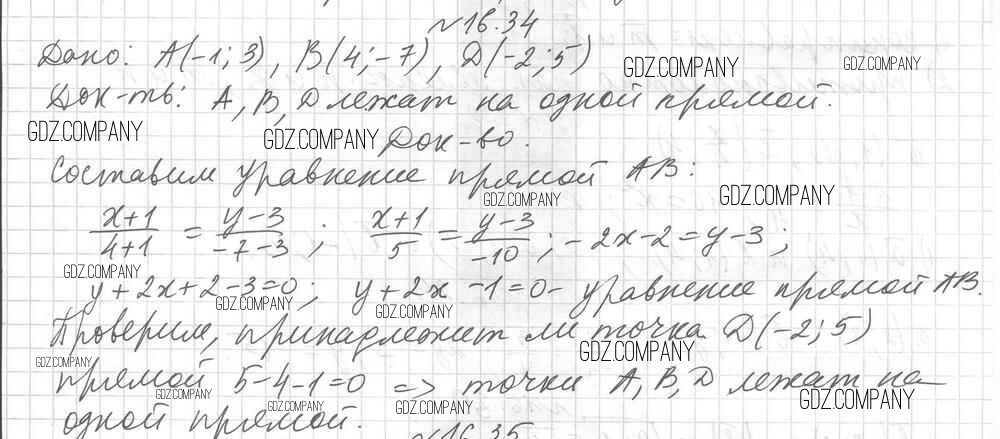 №16.34
Дано: A(-1; 3), B(4; -7), D(-2; 5)
GDZ.COMPANY GDZ.COMPANY
Док-ть: A, B, D лежат на одной прямой.
GDZ.COMPANY GDZ.COMPANY Док-во.
Составим уравнение прямой AB:
GDZ.COMPANY GDZ.COMPANY
x+1/4+1 = y-3/-7-3; x+1/5 = y-3/-10; -2x-2=y-3;
GDZ.COMPANY
y+2x+2-3=0; y+2x-1=0- уравнение прямой AB.
GDZ.COMPANY GDZ.COMPANY
Проверим, принадлежит ли точка D(-2; 5)
GDZ.COMPANY GDZ.COMPANY
прямой 5-4-1=0 => точки A, B, D лежат на
GDZ.COMPANY GDZ.COMPANY GDZ.COMPANY GDZ.COMPANY
одной прямой.
№16.35